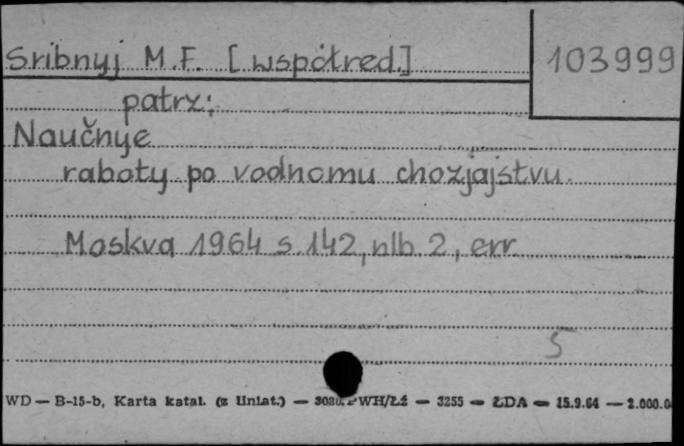 Sribnyj M.F. [współred.] 103999
patrz:
Naučnye
raboty po vodnomu chozjajstvu.
Moskva 1964 s. 142, nlb. 2, err.
5
WD — B-15-b, Karta katal. (z liniat.) — WH/Łź — 3255 — ŁDA — 15.9.64 —